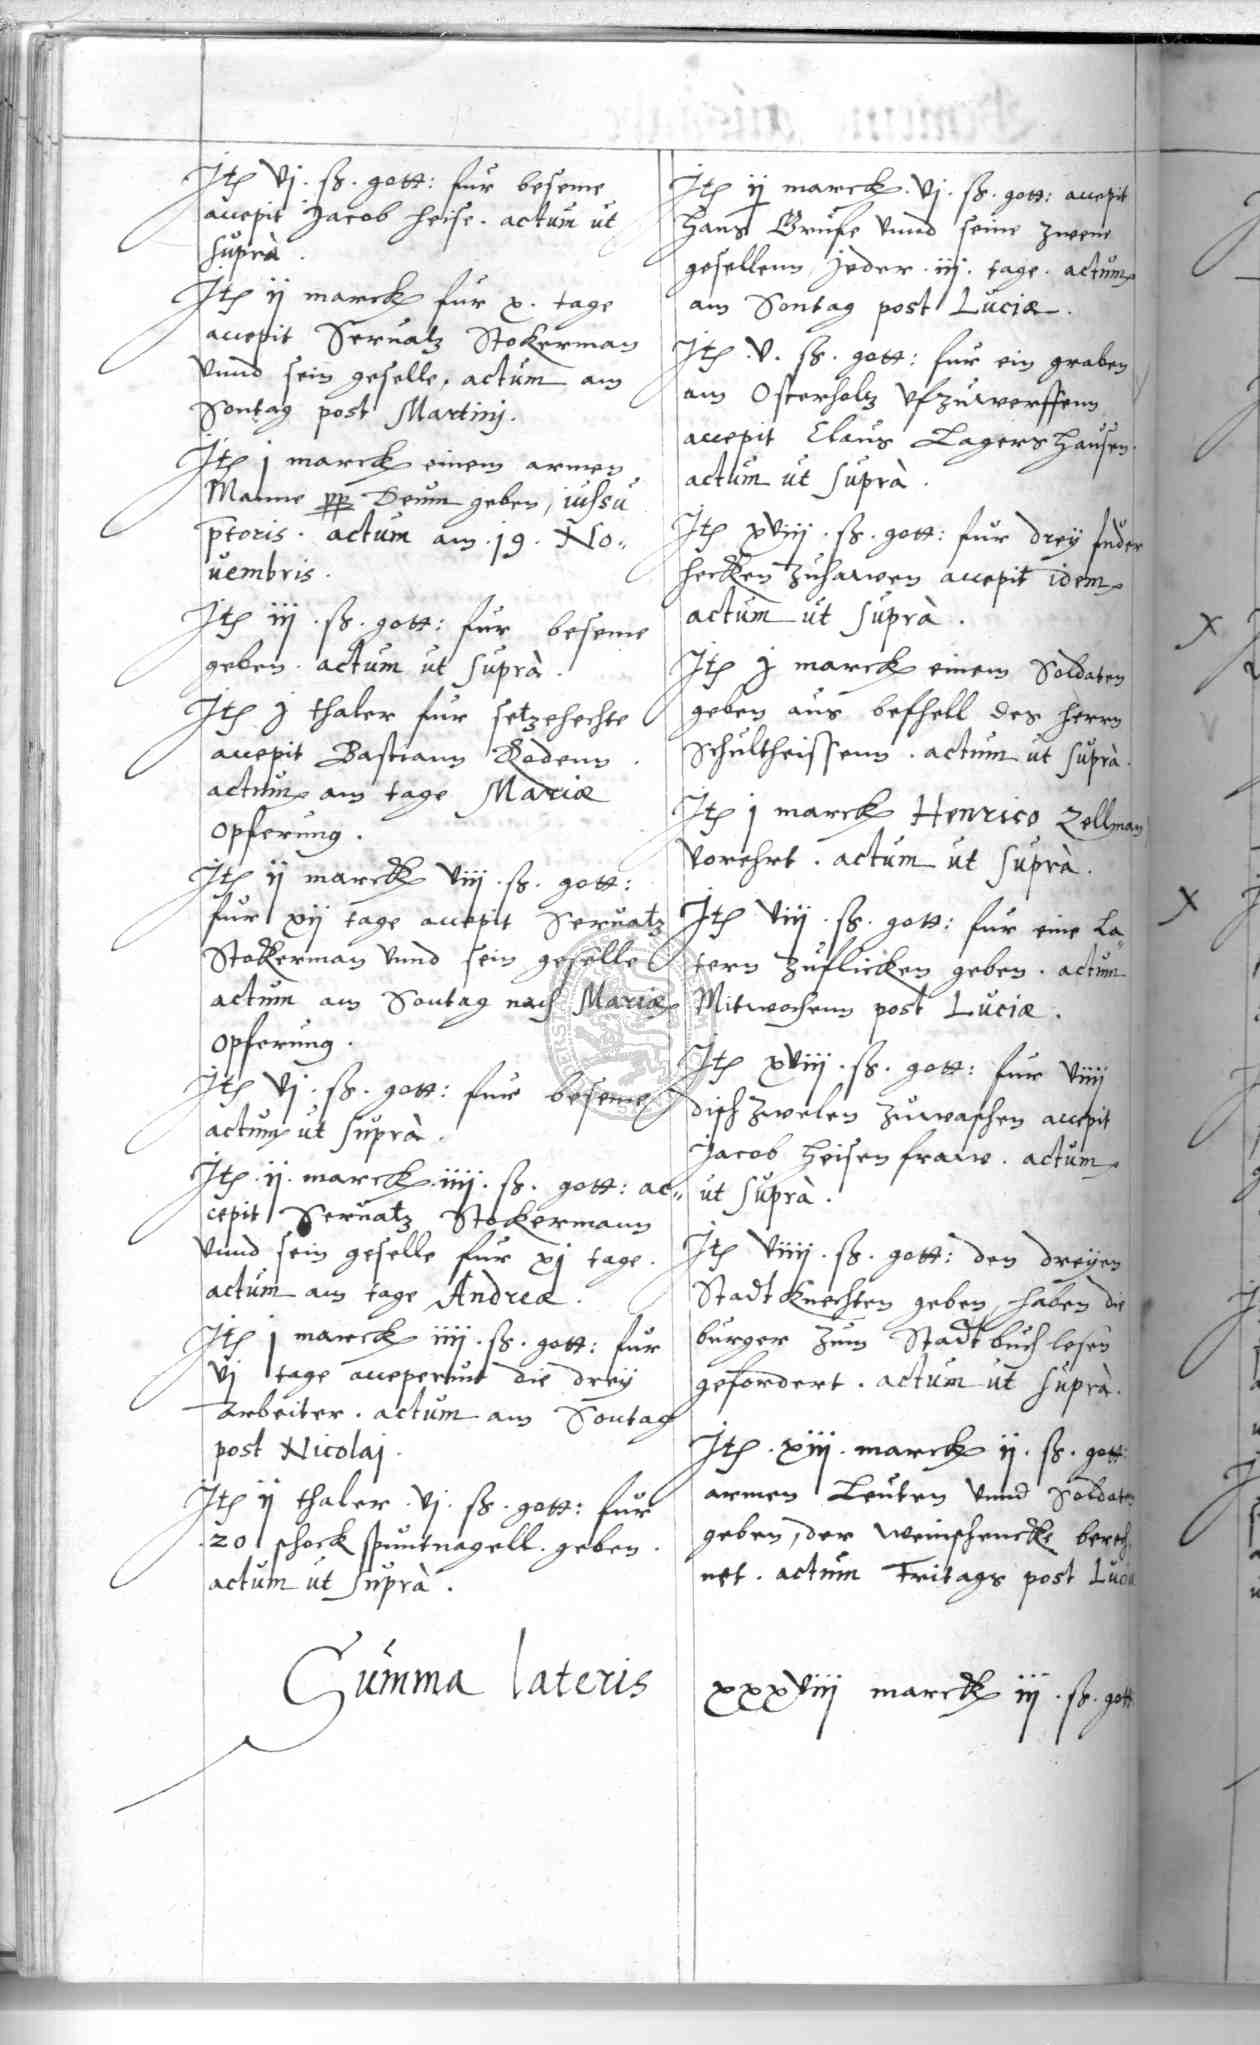 Jtē vj. ß. gott: fur beseme
accepit Jacob heise. actum ut
suprà.
Jtē ij marck fur x. tage
accepit Seruatz Stokerman
vnnd sein geselle, actum am
Sontag post Martinj.
Jtē j marck einem armen
Manne pp Deum geben, iussu
ptoris. actum am .19. No„
uembris.
Jtē iij. ß. gott: fur beseme
geben. actum ut suprà.
Jtē j thaler fur setzehechte
accepit Bastiann Rodenn.
actum am tage Mariæ
opferung.
Jtē ij marck viij. ß. gott:
fur xij tage accepit Seruatz
Stokerman vnnd sein geselle
actum am Sontag nach Mariæ
opferung.
Jtē vj. ß. gott: fur beseme
actum ut suprà.
Jtē .ij. marck .iiij. ß. gott: ac„
cepit Seruatz Stokermann
vnnd sein geselle fur xj tage.
actum am tage Andreæ.
Jtē j marck iiij. ß. gott: fur
vj tage acceperunt die drey
arbeiter. actum am Sontag
post Nicolaj.
Jtē ij thaler .vj. ß. gott: fur
.20 schock spuntnagell. geben.
actum ut suprà.
Jtē ij marck. vj. ß. gott: accepit
Hans Grufe vnnd seine zwene
gesellenn, jeder .iij. tage. actum
am Sontag post Luciæ.
Jtē .v. ß. gott: fur ein graben
am Osterholtz vfzuwerffenn
accepit Claus Lagershausen.
actum ut suprà.
Jtē xviij. ß. gott: fur drey fuder
hecken zuhawen accepit idem
actum ut suprà.
Jtē j marck einem Soldaten
geben aus befhell des herrn
Schultheissenn. actum ut suprà.
Jtē j marck Henrico Zellman
vorehrt. actum ut suprà.
Jtē viij. ß. gott: fur eine La„
tern zuflicken geben. actum
Mitwochenn post Luciæ.
Jtē xviij. ß. gott: fur viiij
disch zwelen zuwaschen accepit
Jacob heisen fraw. actum
ut suprà.
Jtē viiij. ß. gott: den dreyen
Stadtknechten geben, haben die
burger zum Stadtbuch lesen
gefordert. actum ut suprà.
Jtē .xiij. marck ij. ß. gott:
armen Leuten vnnd Soldaten
geben, der weinschencke berech„
net. actum Fritags post Luciæ
Summa lateris xxxviij marck iij. ß. gott